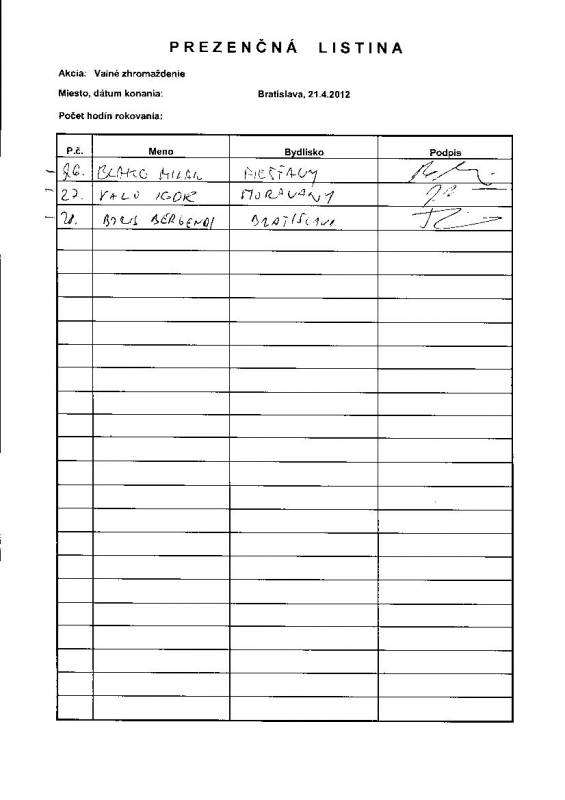 PREZENČNÁ LISTINA
Akcia: Valné zhromaždenie
Miesto, dátum konania: Bratislava, 21.4.2012
Počet hodín rokovania:
P.č. Meno Bydlisko Podpis
26. BLAHO MILAN PIEŠŤANY
27. VALO IGOR MORAVANY
28. BORIS BERGENDI BRATISLAVA